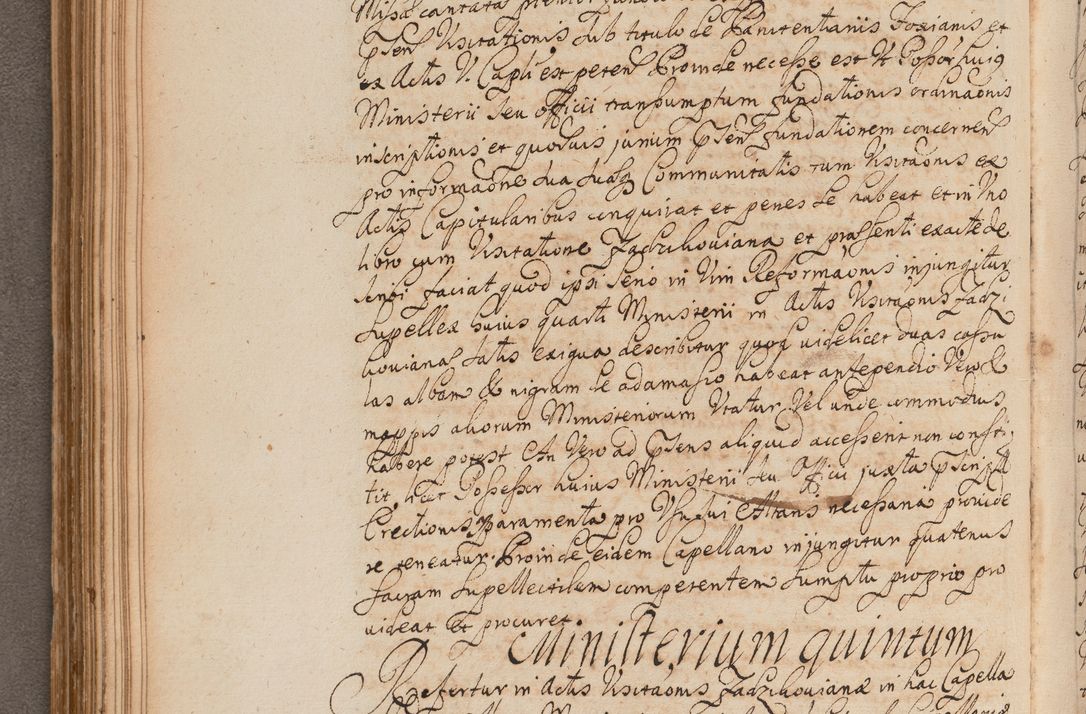 Missa cantata
pnsen Visitationis sub titulo de Paenitentiariis Foxianis et
ex Actis V. Capli est peten Proinde necesse est Ut Possor huig
Ministerii seu officii transumptum fundationis ordinaonis
inscriptionis et quorsuis jurium pnsen fundationem concernen
pro informaone sua suasq Communitatis tum Visitaonis ex
Actis Capitularibus conquirat et penes se habeat et in Uno
libro cum Visitatione Zadzikoviana et praessenti exacte de
scribi faciat quod ipsi serio in Vim Reformaonis injungitur
Supellex huius quarti Ministerii in Actis Visitaonis Zadzi
koviana satis exigua describitur quod videlicet duas casu
las albam & nigram de adamasco habeat antependio Vero &
mappis aliorum Ministeriorum Utatur Vel unde commodius
habere potest An Vero ad pnsens aliquid accesserit non consti
tit, licet Possessor huius Ministerii seu Officii juxta pscript
Erectionis Paramenta pro Usu sui Altaris necessaria provide
re teneatur. Proinde eidem Capellano injungitur quatenus
sacram Supellectilem competentem Sumptu proprio pro
videat Et procuret
Ministerium quintum
Refertur in Actis Visitaonis Zadzikoviana in hac Capella